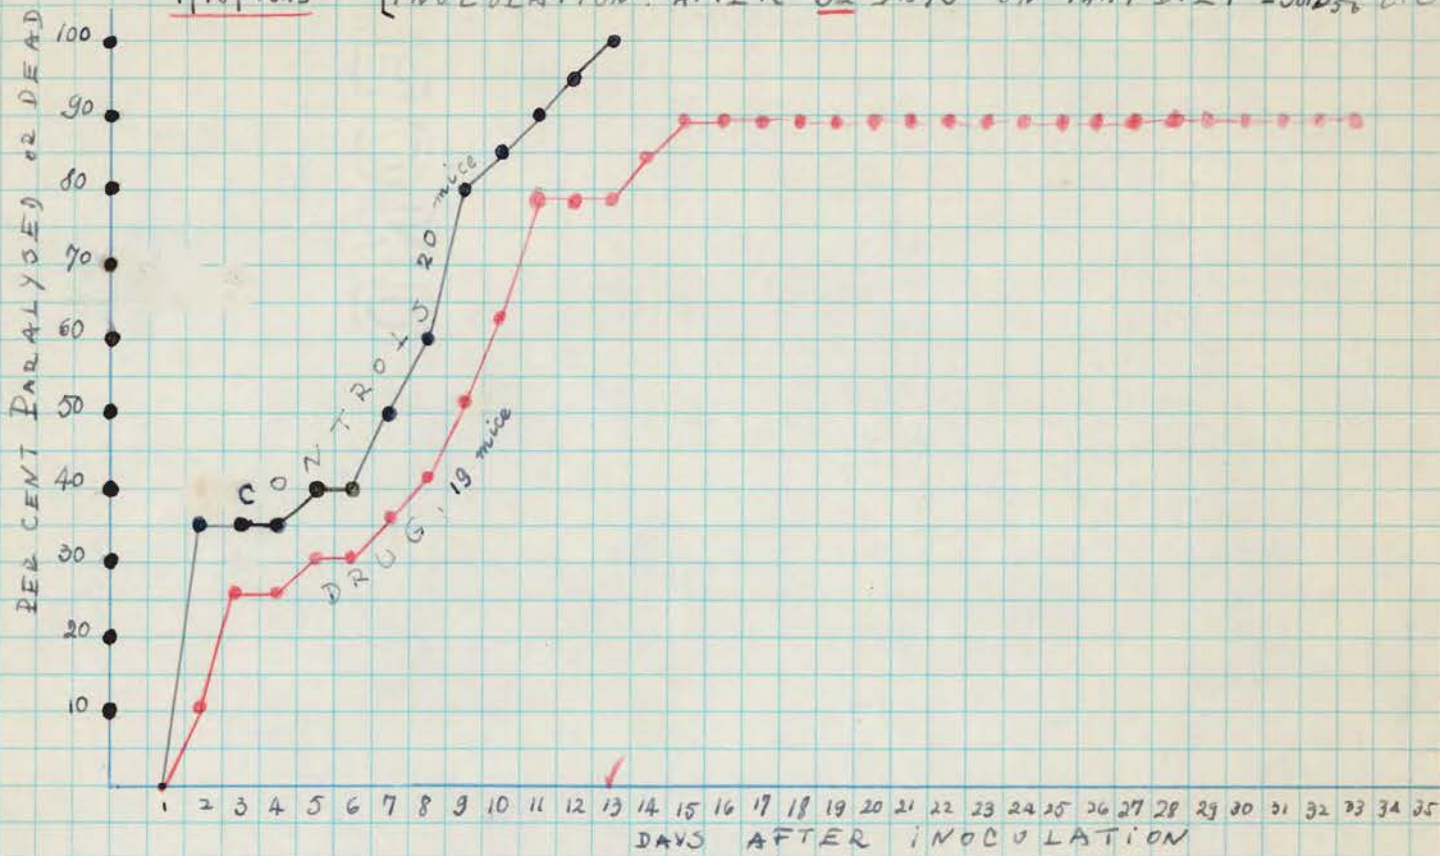 [INOCULATION: AFTER 32 DAYS ON
PER CENT PARALYSED OR DEAD
100
90
80
70
60
50
40
30
20
10
CONTROLS 20 mice
DRUG. 19 mice
1 2 3 4 5 6 7 8 9 10 11 12 13 14 15 16 17 18 19 20 21 22 23 24 25 26 27 28 29 30 31 32 33 34 35
DAYS AFTER INOCULATION